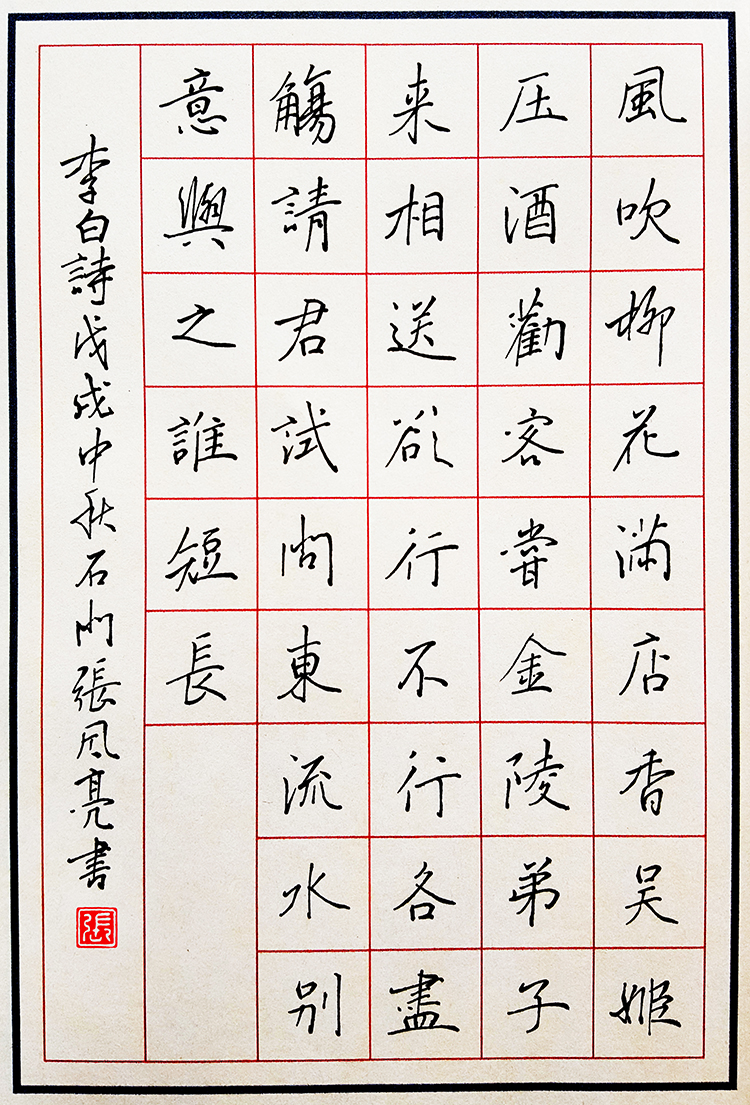 風吹柳花滿店香吴姬
压酒勸客嘗金陵弟子
来相送欲行不行各盡
觴請君試問東流水别
意與之誰短長
李白詩戊戌中秋石门張风亮書
張